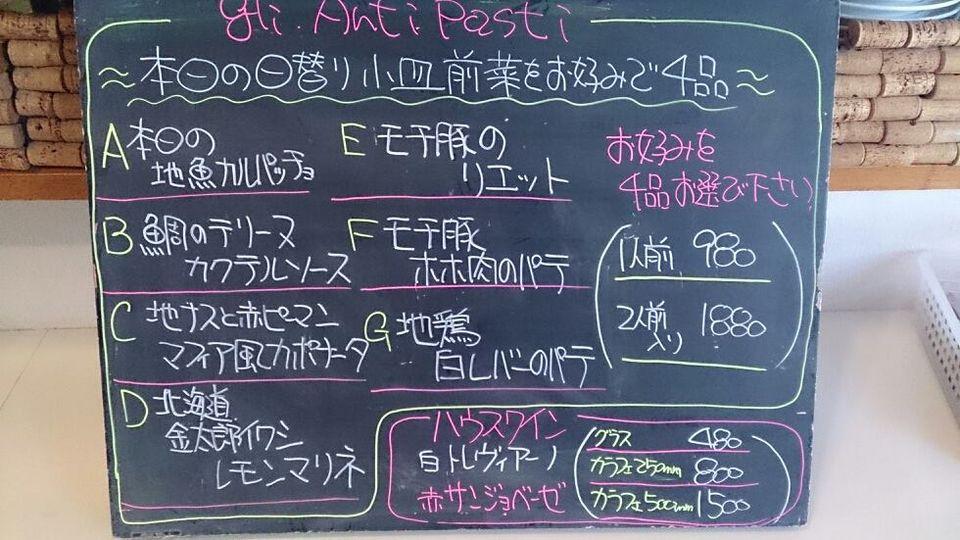 gli. Anti Pasti
～本日の日替り小皿前菜をお好みで4品～
A 本日の
地魚カルパッチョ
B 鯛のテリーヌ
カクテルソース
C 地ナスと赤ピーマン
マフィア風カポナータ
D 北海道
金太郎イワシ
レモンマリネ
E モチ豚の
リエット
F モチ豚
ホホ肉のパテ
G 地鶏
白レバーのパテ
お好みを
4品お選び下さい
1人前 980
2人前入り 1880
ハウスワイン
白トレヴィアーノ
赤サンジョベーゼ
グラス 480
カラフェ250mm 800
カラフェ500mm 1500